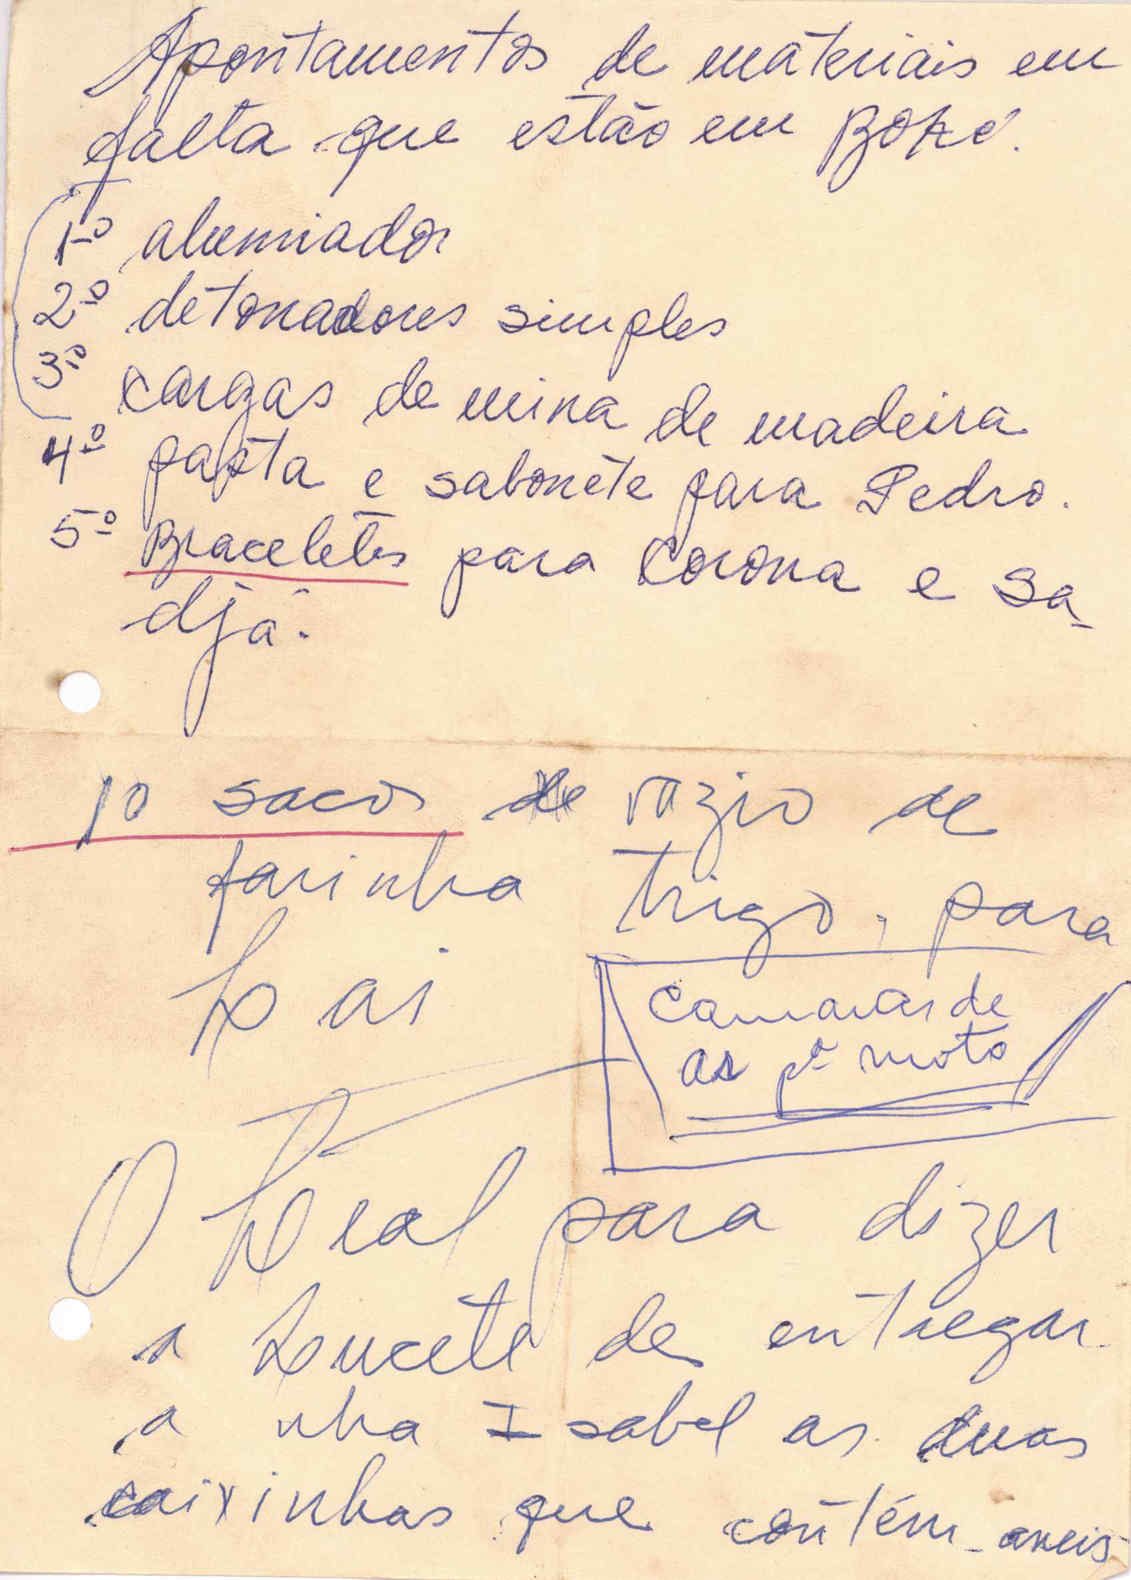 Apontamentos de materiais em
falta que estão em Boké.
1º alumiador
2º detonadores simples
3º cargas de mina de madeira
4º pasta e sabonete para Pedro.
5º Braceletes para Corona e Sa-
djá.
10 sacos de vazio de
farinha trigo, para
Lai
camaras de
as pª moto
O Leal para dizer
a Lucete de entregar
a nha Isabel as duas
caixinhas que contém aneis